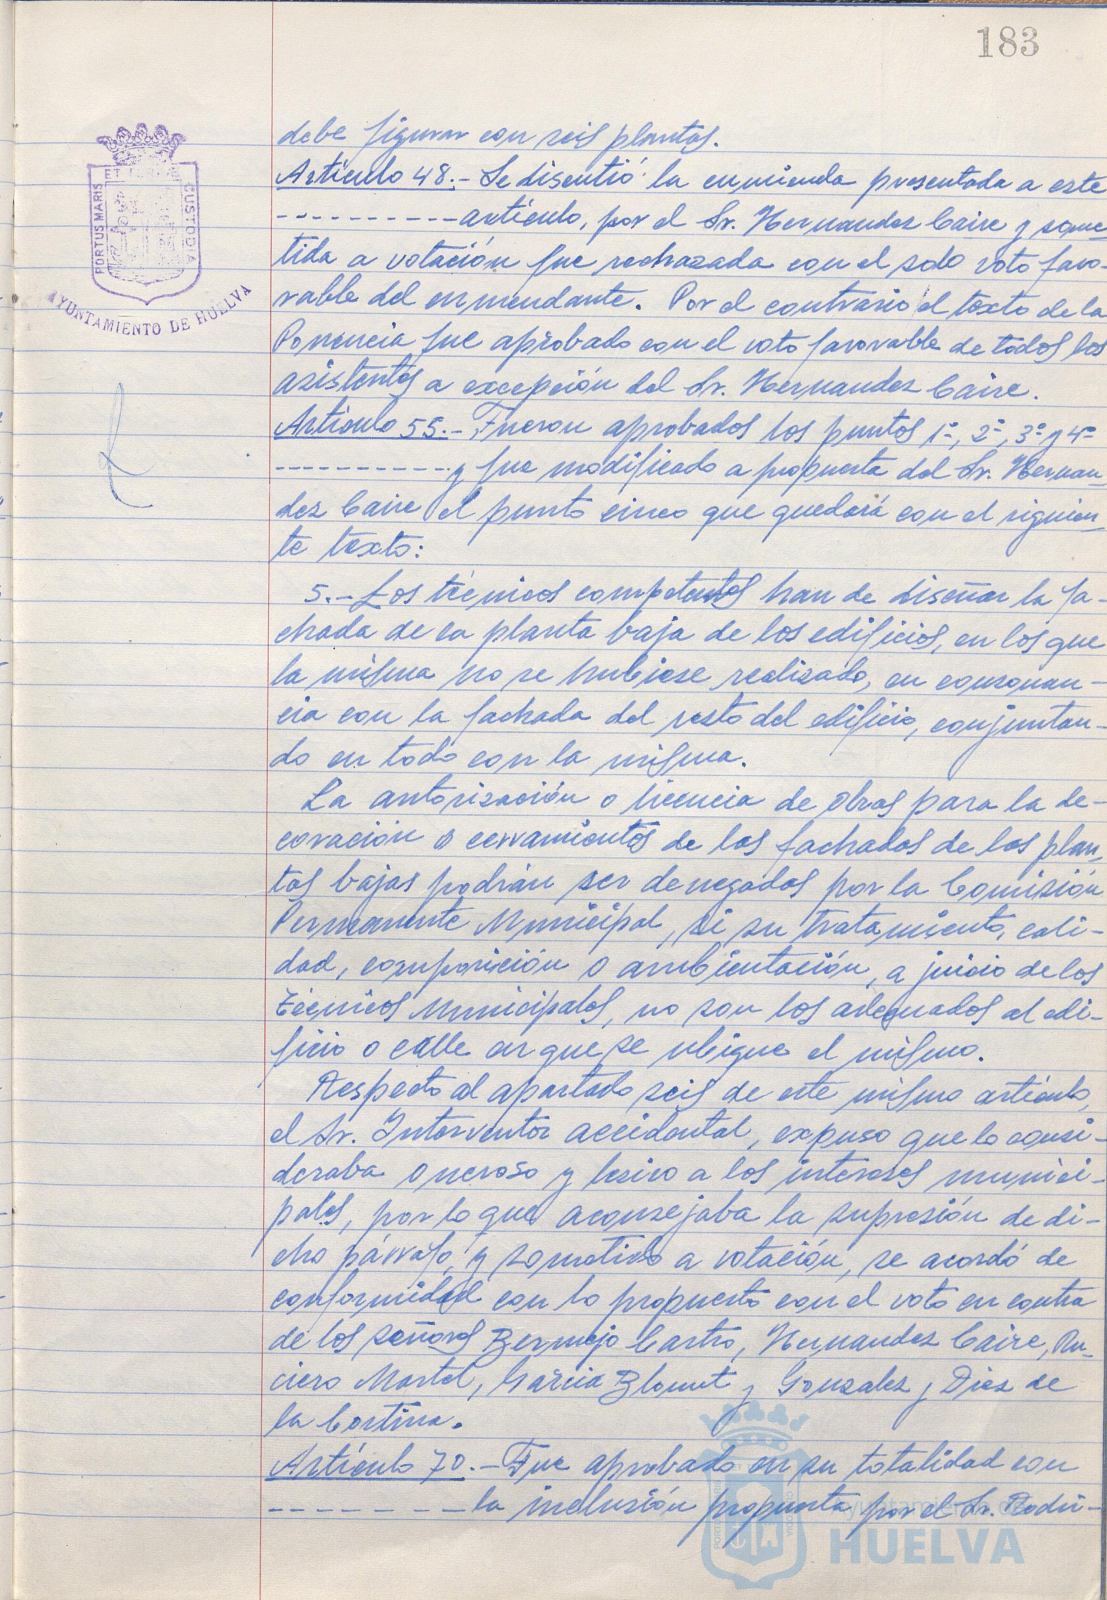 183
PORTUS MARIS
ET TERRE
CUSTODIA
AYUNTAMIENTO DE HUELVA
debe figurar con seis plantas.
Artículo 48.- Se discutió la enmienda presentada a este
----------artículo, por el Sr. Hernandez Caire y some-
tida a votación fue rechazada con el solo voto favo-
rable del enmendante. Por el contrario el texto de la
Ponencia fue aprobado con el voto favorable de todos los
asistentes a excepción del Sr. Hernandez Caire.
Artículo 55.- Fueron aprobados los puntos 1º, 2º, 3º y 4º
----------y fue modificado a propuesta del Sr. Hernan-
dez Caire el punto cinco que quedará con el siguien-
te texto:
5.- Los técnicos competentes han de diseñar la fa-
chada de la planta baja de los edificios, en los que
la misma no se hubiese realizado, en consonan-
cia con la fachada del resto del edificio, conjuntan-
do en todo con la misma.
La autorización o licencia de obras para la de-
coración o cerramientos de las fachadas de las plan-
tas bajas podrán ser denegadas por la Comisión
Permanente Municipal, si su tratamiento, cali-
dad, composición o ambientación, a juicio de los
Técnicos Municipales, no son los adecuados al edi-
ficio o calle en que se ubique el mismo.
Respecto al apartado seis de este mismo artículo,
el Sr. Interventor accidental, expuso que lo consi-
deraba oneroso y lesivo a los intereses munici-
pales, por lo que aconsejaba la supresión de di-
cho párrafo, y sometido a votación, se acordó de
conformidad con lo propuesto con el voto en contra
de los señores Bermejo Castro, Hernandez Caire, Ru-
ciero Martel, García Blomet y Gonzalez y Diez de
la Cortina.
Artículo 70.- Fue aprobado en su totalidad con
----------la inclusión propuesta por el Sr. Rodri-
Ayuntamiento de
HUELVA